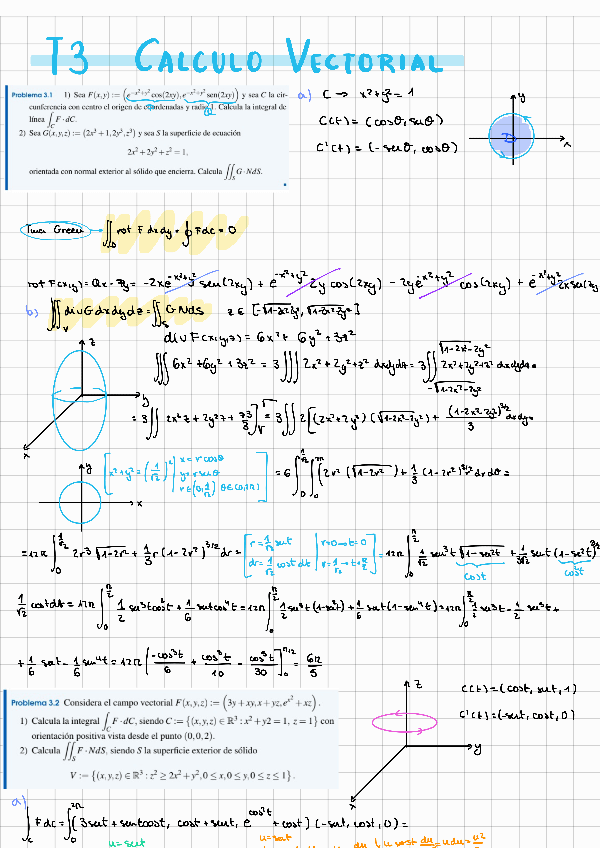 T3 CALCULO VECTORIAL
Problema 3.1 1) Sea F(x,y) := (e^{-x²+y²} cos(2xy), e^{-x²+y²} sen(2xy)) y sea C la cir-
cunferencia con centro el origen de coordenadas y radio 1. Calcula la integral de
línea ∫_C F · dC.
2) Sea G(x,y,z) := (2x³+1, 2y³, z³) y sea S la superficie de ecuación
2x² + 2y² + z² = 1,
orientada con normal exterior al sólido que encierra. Calcula ∬_S G · NdS.
a) C → x²+y² = 1
C(t) = (cosθ, senθ)
C'(t) = (-senθ, cosθ)
D
x
y
Green ∬_D rot F dxdy = ∮ F dc = 0
rot F(x,y) = Qx - Py = -2x e^{-x²+y²} sen(2xy) + e^{-x²+y²} 2y cos(2xy) - 2y e^{-x²+y²} cos(2xy) + e^{-x²+y²} 2x sen(2xy)
b) ∭_V div G dxdydz = ∬_S G N dS z ∈ [-√(1-2x²-2y²), √(1-2x²-2y²)]
div F(x,y,z) = 6x² + 6y² + 3z²
∭ 6x² + 6y² + 3z² = 3 ∭ 2x² + 2y² + z² dxdydz = 3 ∬ ∫_{-√(1-2x²-2y²)}^{√(1-2x²-2y²)} 2x²+2y²+z² dxdydz =
z
y
x
= 3 ∬ 2x²z + 2y²z + z³/3 ]_√^√ = 3 ∬ 2 [(2x²+2y²)(√(1-2x²-2y²)) + (1-2x²-2y²)^{3/2}/3 dxdy =
y
x
[x²+y² = (1/√2)² | x = r cosθ
y = r senθ
r ∈ (0, 1/√2) θ ∈ (0, 2π)]
= 6 ∫_0^{1/√2} ∫_0^{2π} [2r² (√(1-2r²)) + 1/3 (1-2r²)^{3/2} r dr dθ =
= 12π ∫_0^{1/√2} 2r³ √(1-2r²) + 1/3 r (1-2r²)^{3/2} dr = [r = 1/√2 sent | r=0 → t=0
dr = 1/√2 cost dt | r = 1/√2 → t = π/2] = 12π ∫_0^{π/2} 1/√2 sen³t √(1-sen²t) + 1/3√2 sent (1-sen²t)^{3/2}
cost
cos³t
1/√2 cost dt = 12π ∫_0^{π/2} 1/2 sen³t cos²t + 1/6 sent cos⁴t = 12π ∫_0^{π/2} 1/2 sen³t (1-sen²t) + 1/6 sent (1-sen⁴t) = 12π ∫_0^{π/2} 1/2 sen³t - 1/2 sen⁵t +
+ 1/6 sent - 1/6 sen⁴t = 12π [-cos³t/6 + cos⁵t/10 - cos⁵t/30]_0^{π/2} = 6π/5
Problema 3.2 Considera el campo vectorial F(x,y,z) := (3y + xy, x + yz, e^{x²} + xz).
1) Calcula la integral ∫_C F · dC, siendo C := {(x,y,z) ∈ ℝ³ : x² + y2 = 1, z = 1} con
orientación positiva vista desde el punto (0,0,2).
2) Calcula ∬_S F · NdS, siendo S la superficie exterior de sólido
V := {(x,y,z) ∈ ℝ³ : z² ≥ 2x² + y², 0 ≤ x, 0 ≤ y, 0 ≤ z ≤ 1}.
z
y
x
C(t) = (cost, sent, 1)
C'(t) = (-sent, cost, 0)
a)
∫_C F dC = ∫_0^{2π} (3sent + sentcost, cost + sent, e^{cos²t} + cost) (-sent, cost, 0) =
u = sent
u = sent